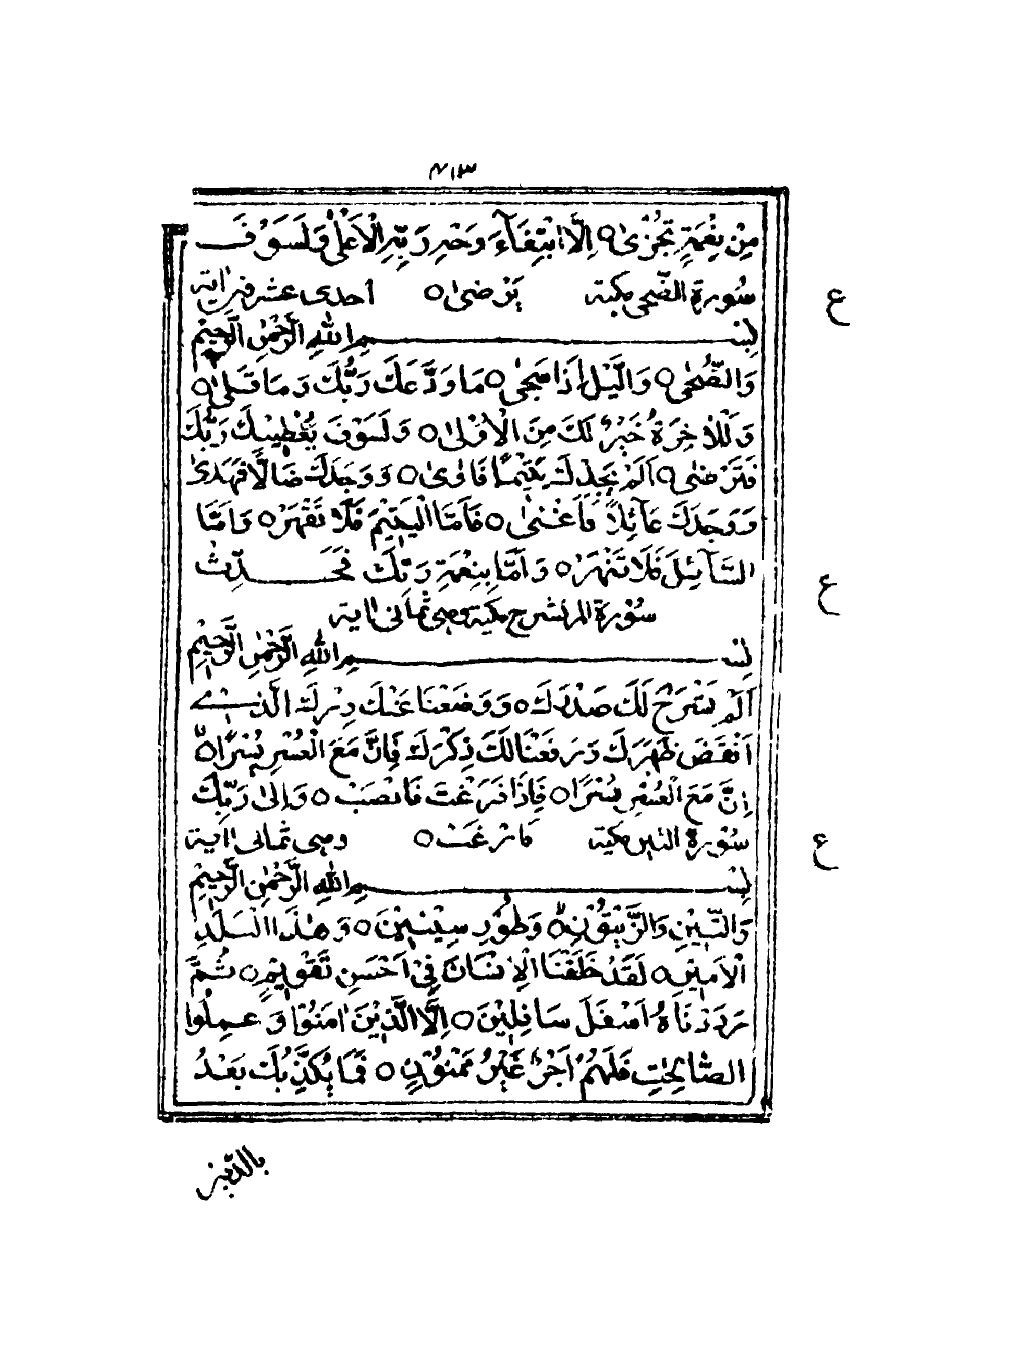 ۴۱۳
مِنْ نِعْمَةٍ تُجْزٰىٓ ○ اِلَّا ابْتِغَآءَ وَجْهِ رَبِّهِ الْاَعْلٰى ○ وَلَسَوْفَ
سُورة الضّحى مكية يَرْضٰى ○ احدى عشر اٰية
بِسْــــــمِ اللّٰهِ الرَّحْمٰنِ الرَّحِيْمِ
ع
وَالضُّحٰى ○ وَالَّيْلِ اِذَا سَجٰى ○ مَا وَدَّعَكَ رَبُّكَ وَمَا قَلٰى ○
وَلَلْاٰخِرَةُ خَيْرٌ لَّكَ مِنَ الْاُوْلٰى ○ وَلَسَوْفَ يُعْطِيْكَ رَبُّكَ
فَتَرْضٰى ○ اَلَمْ يَجِدْكَ يَتِيْمًا فَاٰوٰى ○ وَوَجَدَكَ ضَآلًّا فَهَدٰى
وَوَجَدَكَ عَآئِلًا فَاَغْنٰى ○ فَاَمَّا الْيَتِيْمَ فَلَا تَقْهَرْ ○ وَاَمَّا
السَّآئِلَ فَلَا تَنْهَرْ ○ وَاَمَّا بِنِعْمَةِ رَبِّكَ فَحَــــدِّثْ
ع
سُوْرة الم نشرح مكية وهى ثمانى اٰية
بِسْــــــمِ اللّٰهِ الرَّحْمٰنِ الرَّحِيْمِ
اَلَمْ نَشْرَحْ لَكَ صَدْرَكَ ○ وَوَضَعْنَا عَنْكَ وِزْرَكَ الَّذِىْ
اَنْقَضَ ظَهْرَكَ وَرَفَعْنَا لَكَ ذِكْرَكَ فَاِنَّ مَعَ الْعُسْرِ يُسْرًا ○
اِنَّ مَعَ الْعُسْرِ يُسْرًا ○ فَاِذَا فَرَغْتَ فَانْصَبْ ○ وَاِلٰى رَبِّكَ
سُوْرة التين مكية فَارْغَبْ ○ وهى ثمانى اٰية
ع
بِسْــــــمِ اللّٰهِ الرَّحْمٰنِ الرَّحِيْمِ
وَالتِّيْنِ وَالزَّيْتُوْنِ ○ وَطُوْرِ سِيْنِيْنَ ○ وَهٰذَا الْبَلَدِ
الْاَمِيْنِ ○ لَقَدْ خَلَقْنَا الْاِنْسَانَ فِىْٓ اَحْسَنِ تَقْوِيْمٍ ○ ثُمَّ
رَدَدْنَاهُ اَسْفَلَ سَافِلِيْنَ ○ اِلَّا الَّذِيْنَ اٰمَنُوْا وَعَمِلُوا
الصّٰلِحٰتِ فَلَهُمْ اَجْرٌ غَيْرُ مَمْنُوْنٍ ○ فَمَا يُكَذِّبُكَ بَعْدُ
بالدّين